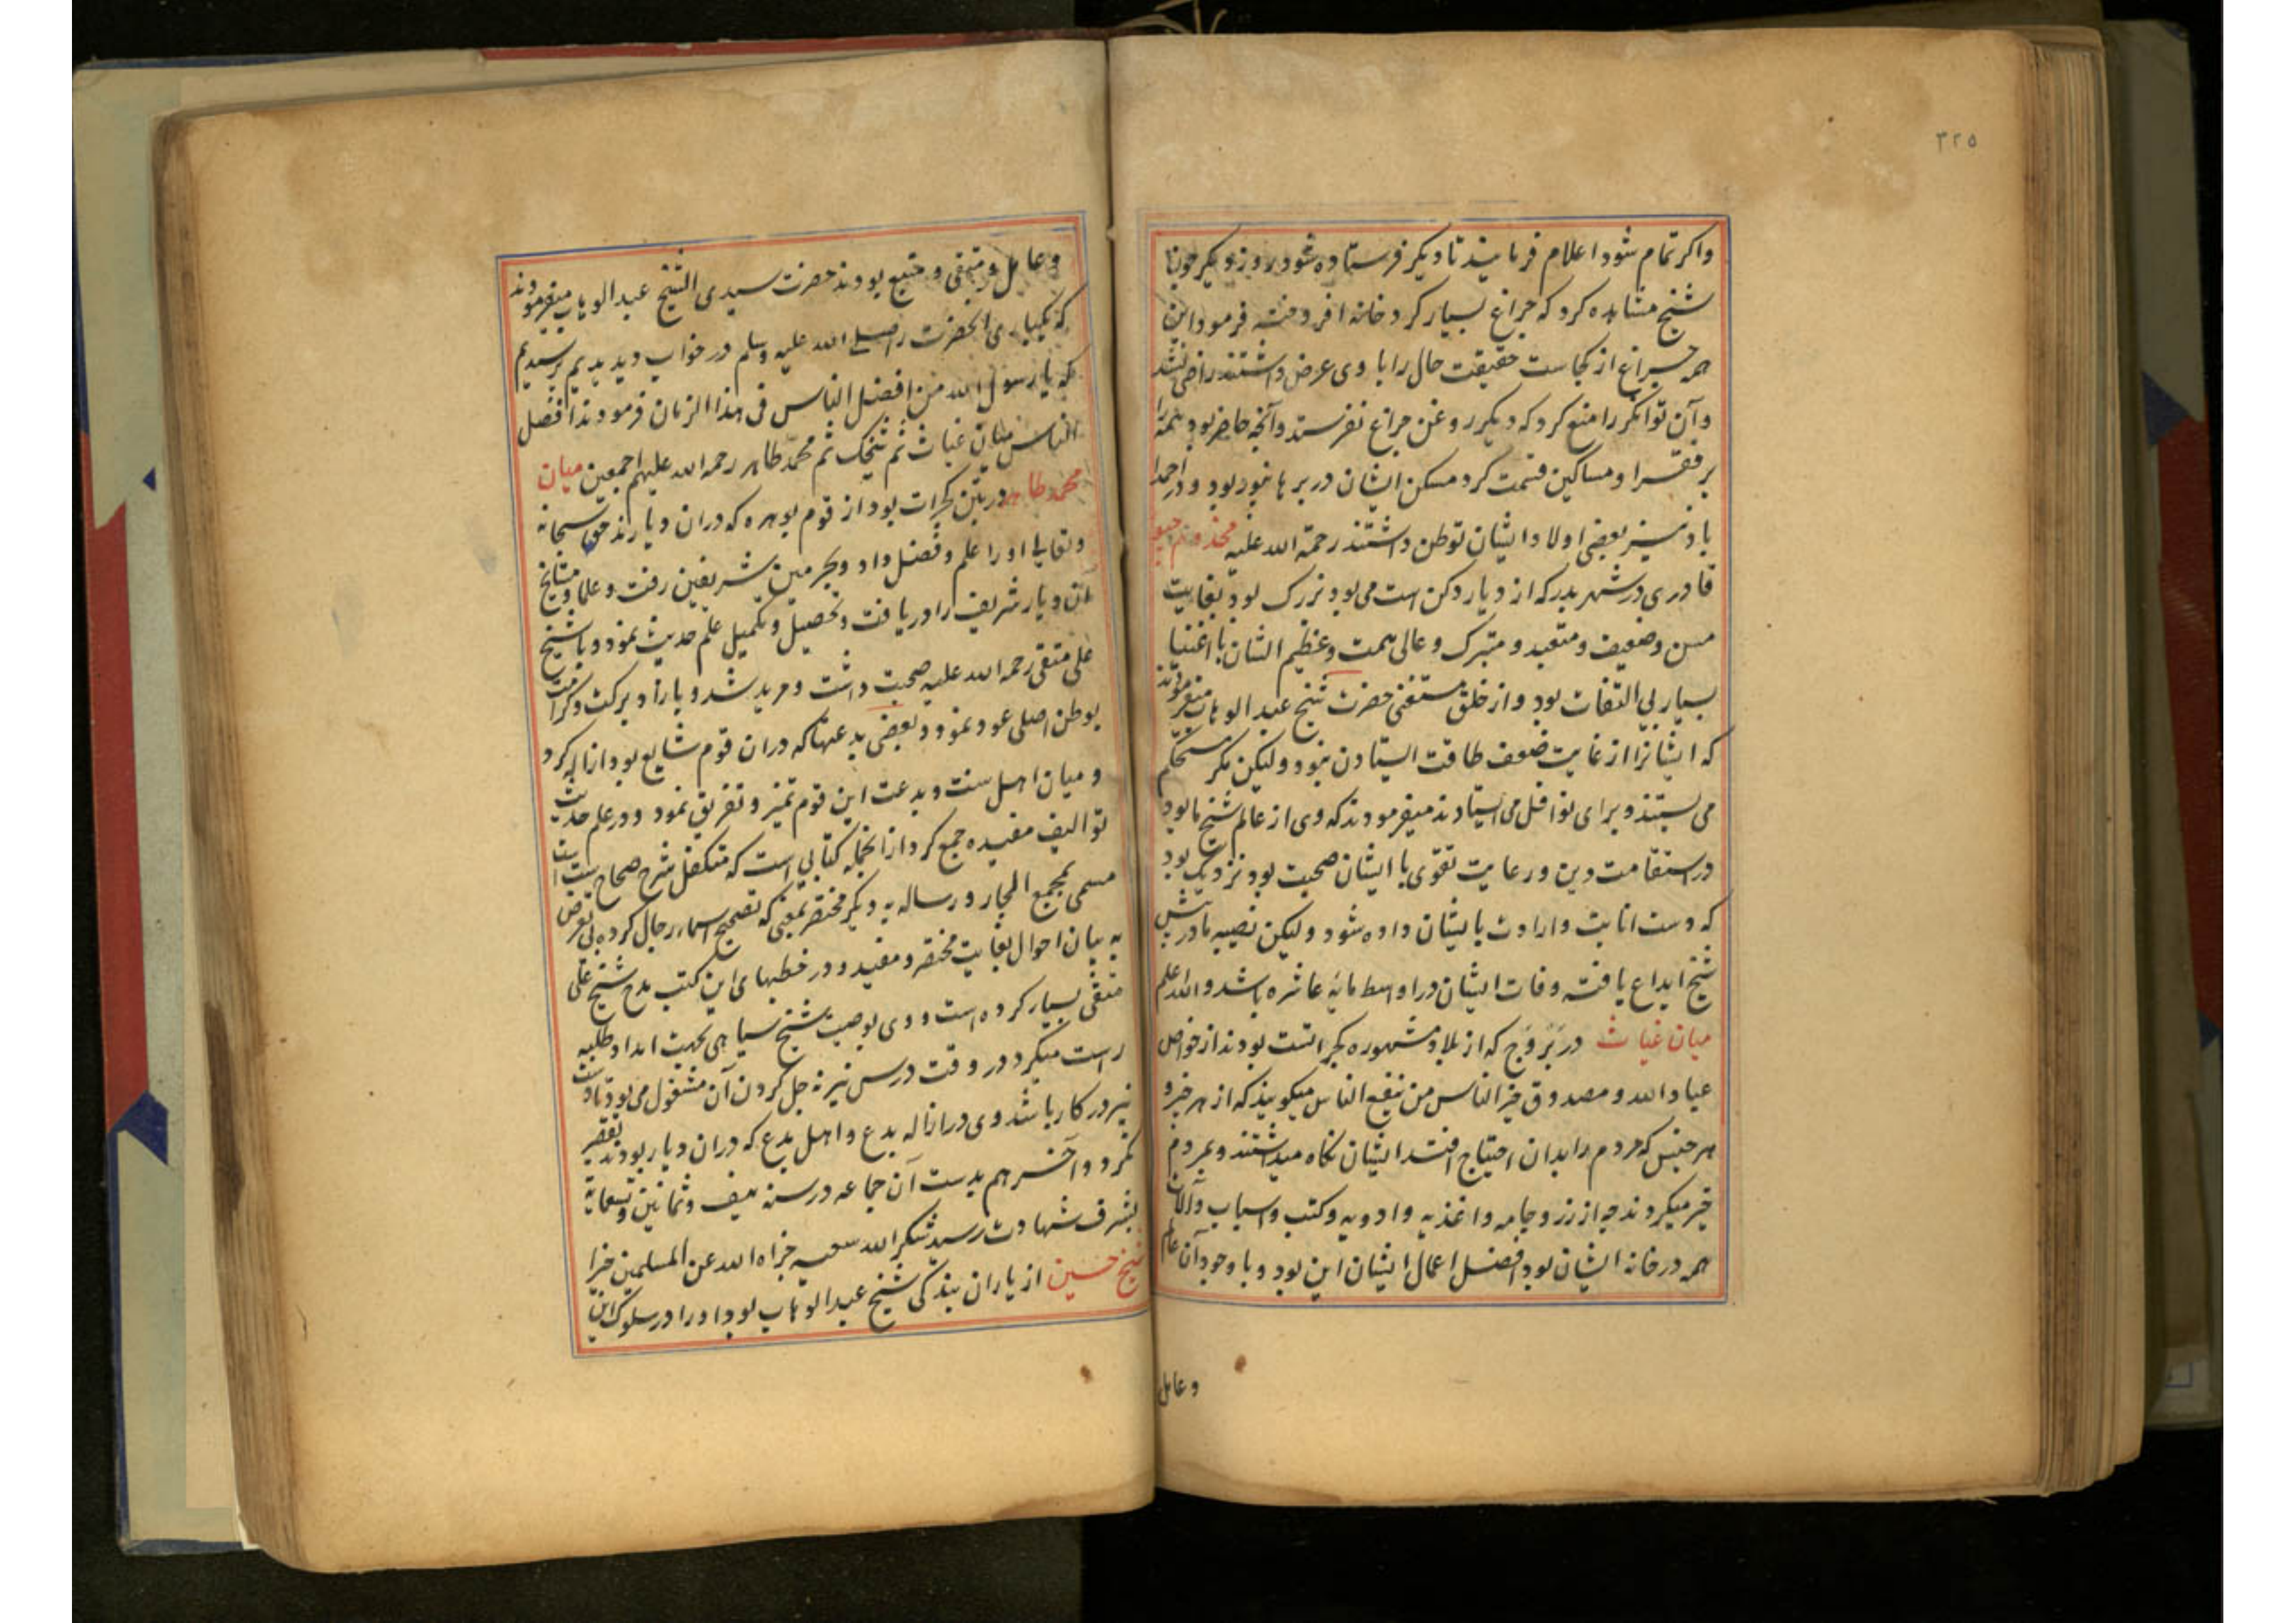 ۳۲۵
واکر تمام شود اعلام فرمایند تا دیکر فرستاده شود روز دیکر چون
شیخ مشاهده کرد که چراغ بسیار کرد خانه افروخته فرمود این
همه چراغ از کجاست حقیقت حال را با وی عرض داشتند راضی نشد
وآن توانکر را منع کرد که دیکر روغن چراغ نفرستد وآنچه حاضر بود همه را
بر فقرا ومساکین قسمت کرد مسکن ایشان در برهانپور بود ودر احمدا
باد نیز بعضی اولاد ایشان توطن داشتند رحمة الله علیه مخدوم جیو
قادری در شهر بدر که از دیار دکن است می بود بزرک بود بغایت
مسن وضعیف ومتعبد ومتبرک وعالی همت وعظیم الشان با اغنیا
بسیار بی التفات بود واز خلق مستغنی حضرت شیخ عبد الوهاب میفرمودند
که ایشانرا از غایت ضعف طاقت ایستادن نبود ولیکن کمر مستحکم
می بستند وبرای نوافل می ایستادند میفرمودند که وی از عالم شیخ ما بود
در استقامت دین ورعایت تقوی با ایشان صحبت بود نزدیک بود
که دست انابت وارادت بایشان داده شود ولیکن نصیبه ما در پیش
شیخ ایداع یافته وفات ایشان در اواسط مایه عاشره باشد والله اعلم
میان غیاث در بروج که از بلاد مشهوره کجراتست بودند از خواص
عباد الله ومصدوق خیر الناس من ینفع الناس میکویند که از هر خیر و
هر جنس که مردم را بدان احتیاج افتد ایشان نکاه میداشتند وبمردم
خیر میکردند چه از زر وجامه واغذیه وادویه وکتب واسباب وآلات
همه در خانه ایشان بود افضل اعمال ایشان این بود وبا وجود آن عالم
وعامل
وعامل ومتقی ومتبع بودند حضرت سیدی الشیخ عبد الوهاب میفرمودند
که یکباری آنحضرت را صلی الله علیه وسلم در خواب دیدیم پرسیدیم
که یا رسول الله من افضل الناس فی هذا الزمان فرمودند افضل
الناس میان غیاث ثم شیخک ثم محمد طاهر رحمه الله علیهم اجمعین میان
محمد طاهر در پتن کجرات بود از قوم بوهره که دران دیارند حق سبحانه
وتعالی او را علم وفضل داد وبحرمین شریفین رفت وعلما ومشایخ
آن دیار شریف را دریافت وتحصیل وتکمیل علم حدیث نمود وبا شیخ
علی متقی رحمه الله علیه صحبت داشت ومرید شد وباراد برکت وکرامت
بوطن اصلی عود نمود وبعضی بدعتها که دران قوم شایع بود ازاله کرد
ومیان اهل سنت وبدعت این قوم تمیز وتفریق نمود ودر علم حدیث
توالیف مفیده جمع کرد ازانجمله کتابی است که متکفل شرح صحاح ست است
مسمی بمجمع البحار ورساله یه دیکر مختصر بمغنی که تصحیح اسماء رجال کرده بی تعرض
به بیان احوال بغایت مختصر ومفید ودر خطبهای این کتب مدح شیخ علی
متقی بسیار کرده است ووی بوصیت شیخ سیاهی بجهت امداد طلبه
راست میکرد ودر وقت درس نیز به حل کردن آن مشغول می بود تا دست
نیز در کار باشد وی در ازاله بدع واهل بدع که دران دیار بودند تقصیر
نکرد وآخر هم بدست آن جماعه در سنه نیف وثمانین وتسعمایة
بشرف شهادت رسید شکر الله سعیه جزاه الله عن المسلمین خیرا
شیخ حسین از یاران بندکی شیخ عبد الوهاب بود او را در سلوک این